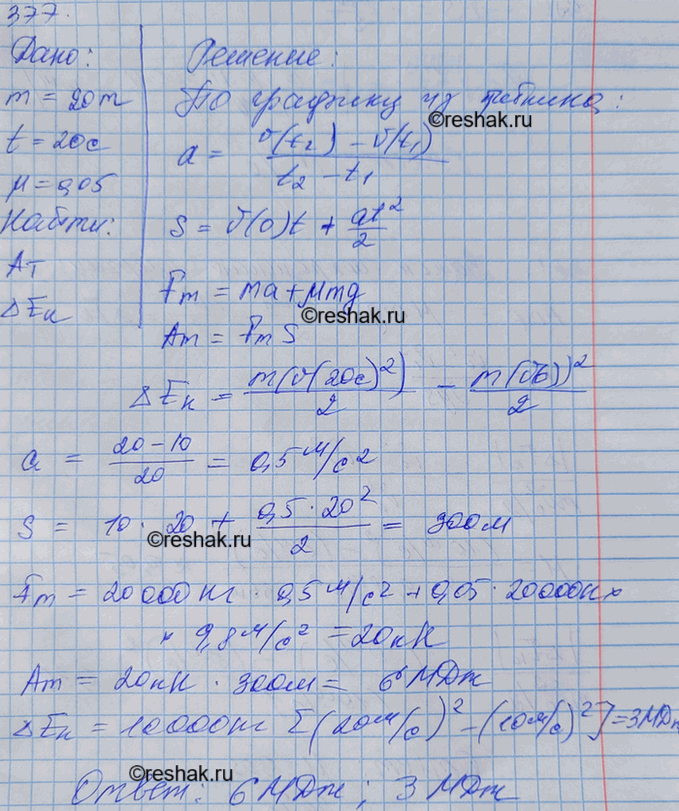 377.
Дано:
m = 20т
t = 20с
μ = 0,05
Найти:
Aт
ΔEк
Решение:
По графику из
©reshak.ru
a = (v(t₂) - v(t₁)) / (t₂ - t₁)
S = v(0)t + at²/2
Fт = ma + μmg
©reshak.ru
Aт = Fт S
ΔEк = m(v(20с)²)/2 - m(v(0))²/2
a = (20-10)/20 = 0,5 м/с²
S = 10 · 20 + (0,5 · 20²)/2 = 300м
©reshak.ru
Fт = 20000 кг · 0,5 м/с² + 0,05 · 20000кг ×
× 9,8 м/с² = 20кН
Aт = 20кН · 300м = 6 МДж
ΔEк = 10000кг [(20м/с)² - (10м/с)²] = 3МДж
©reshak.ru
Ответ: 6 МДж; 3 МДж